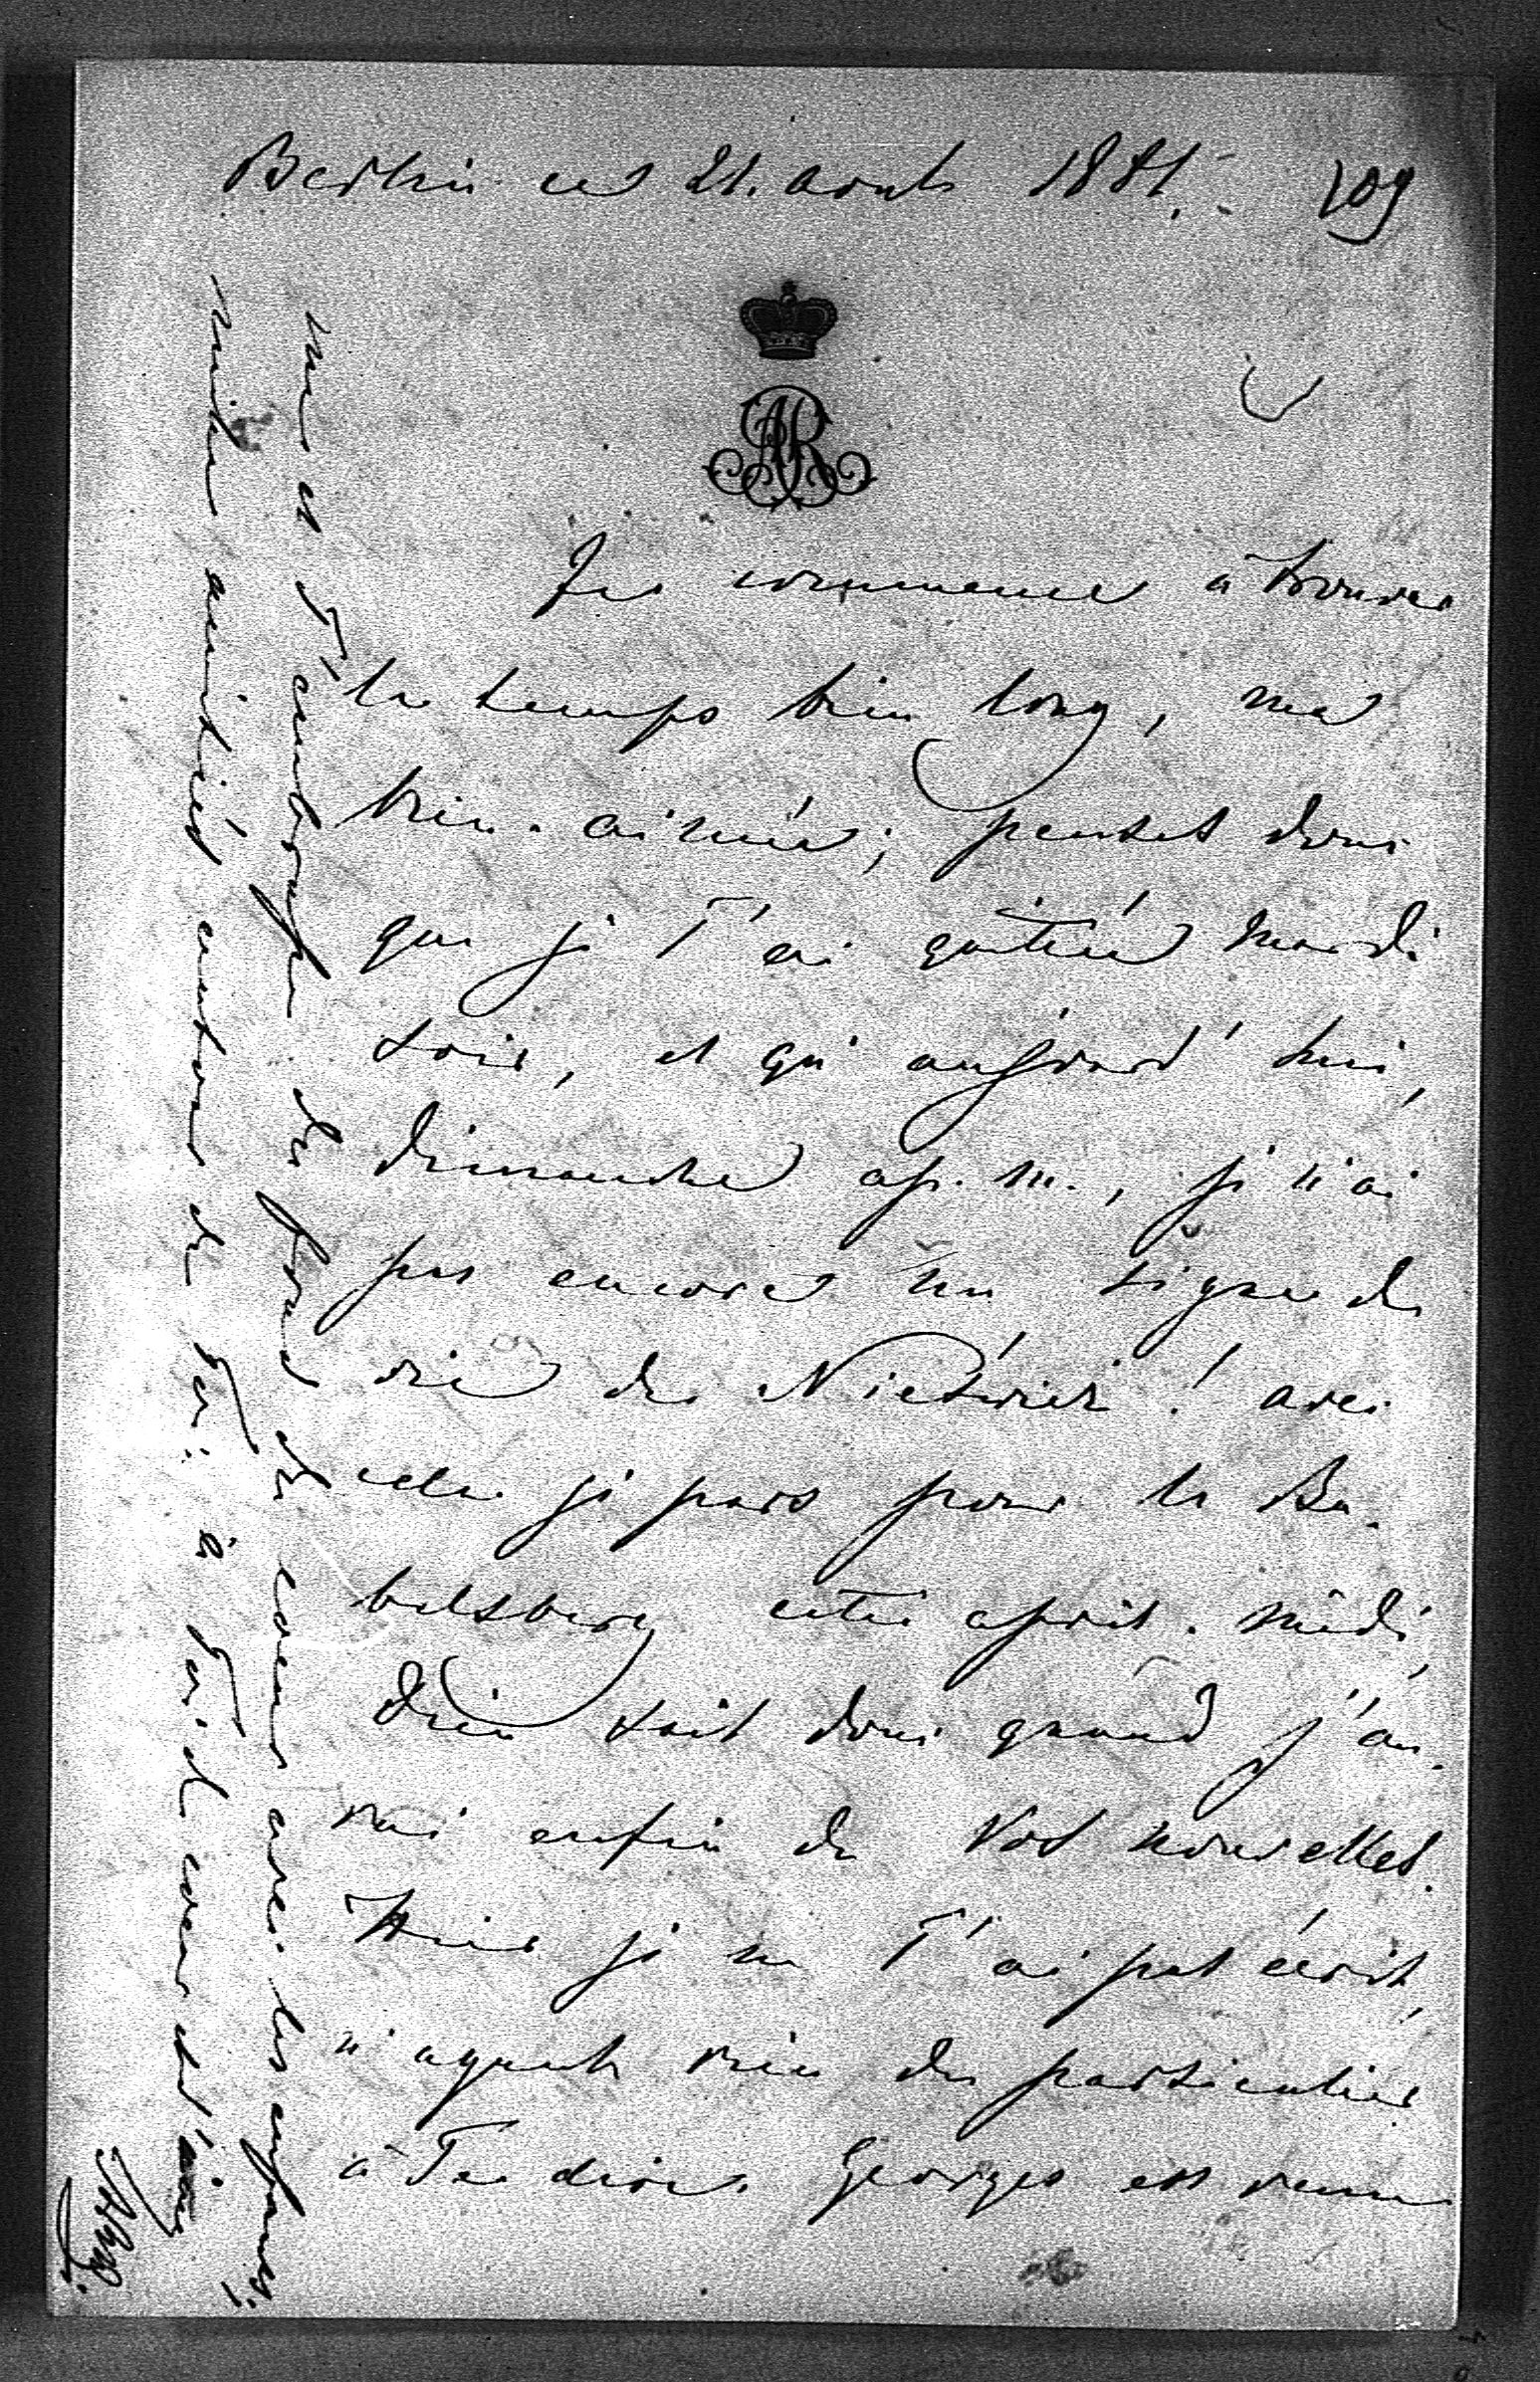 Berlin ce 21. août 1881.
109
AR
Je commence à trouver
le temps bien long, ma
bien-aimée; penses donc
que je T'ai quittée mardi
soir, et qu'aujourd'hui,
dimanche ap. m., je n'ai
pas encore un signe de
vie de Nieświeź! avec
cela je pars pour le Ba-
belsberg cette après-midi,
Dieu sait donc quand j'au-
rai enfin de Vos nouvelles.
Hier je ne T'ai pas écrit,
n'ayant rien de particulier
à Te dire. Georges est venu
me et T'embrasse du fond du coeur avec les enfants;
mille amitiés autour de Toi: à Toi de coeur et d'âme